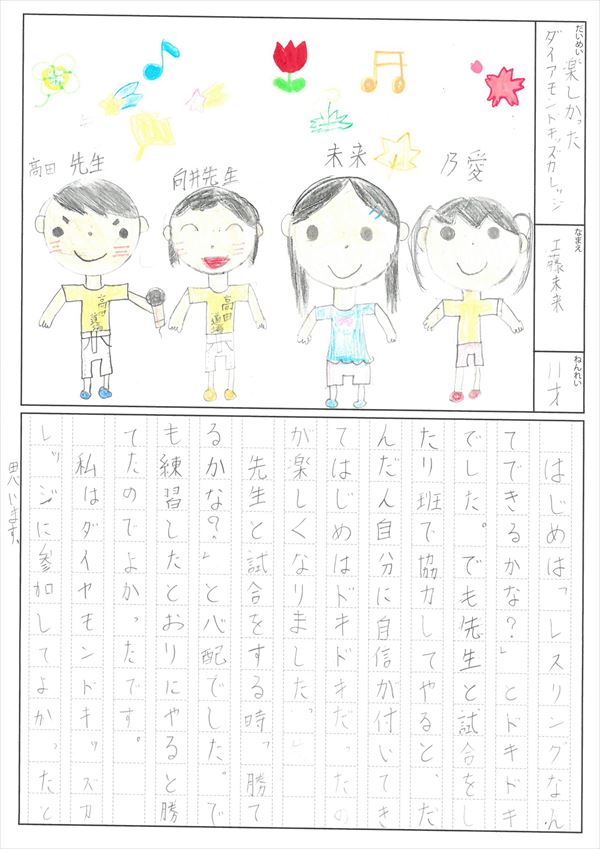 だいめい
楽しかった
ダイアモントキッズカレッジ
なまえ
工藤未来
ねんれい
11才
高田先生
向井先生
未来
乃愛
高田道場
高田道場
はじめは「レスリングなん
てできるかな?」とドキドキ
でした。でも先生と試合をし
たり班で協力してやると、だ
んだん自分に自信が付いてき
てはじめはドキドキだったの
が楽しくなりました。
先生と試合をする時「勝て
るかな?」と心配でした。で
も練習したとおりにやると勝
てたのでよかったです。
私はダイヤモンドキッズカ
レッジに参加してよかったと
思います。